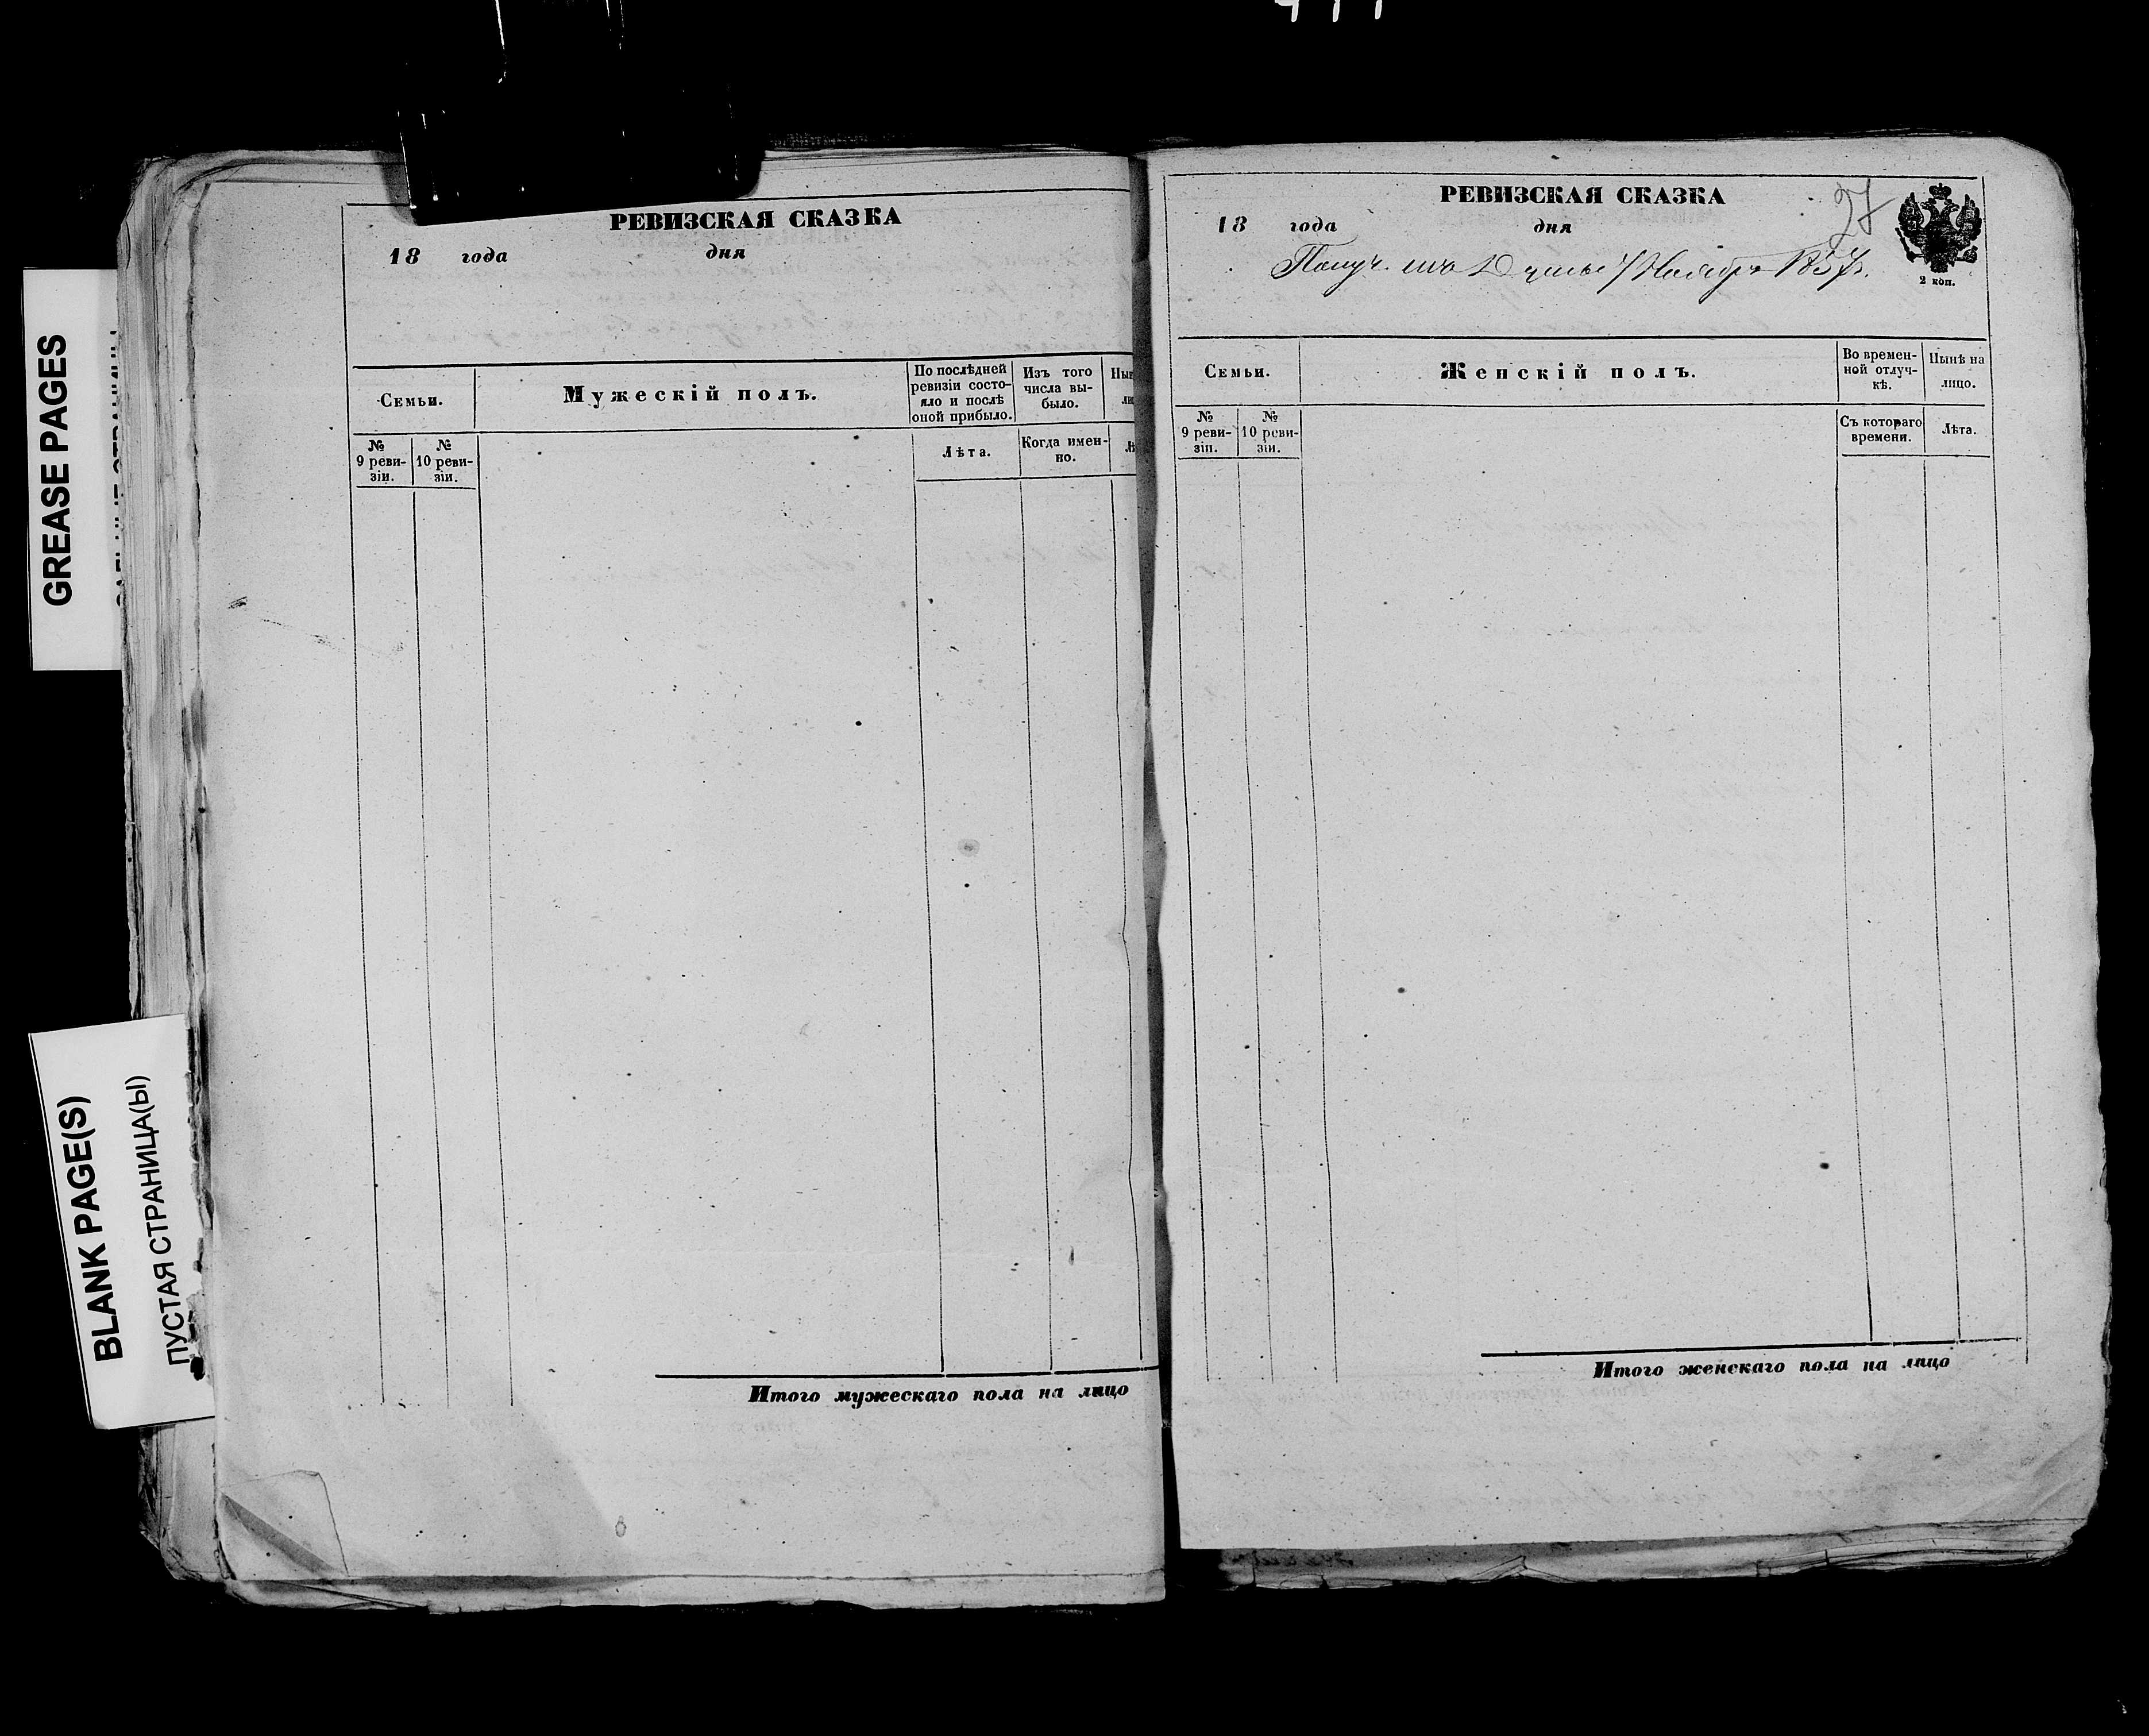 GREASE PAGES
BLANK PAGE(S)
ПУСТАЯ СТРАНИЦА(Ы)
РЕВИЗСКАЯ СКАЗКА
18 года дня
Семьи.
Мужескій полъ.
По послѣдней
ревизіи состо-
яло и послѣ
оной прибыло.
Изъ того
числа вы-
было.
№
9 реви-
зіи.
№
10 реви-
зіи.
Лѣта.
Когда имен-
но.
Итого мужескаго пола на лицо
РЕВИЗСКАЯ СКАЗКА
27
18 года дня
Получ. Ноября 1857г.
2 коп.
Семьи.
Женскій полъ.
Во времен-
ной отлуч-
кѣ.
Нынѣ на
лицо.
№
9 реви-
зіи.
№
10 реви-
зіи.
Съ котораго
времени.
Лѣта.
Итого женскаго пола на лицо